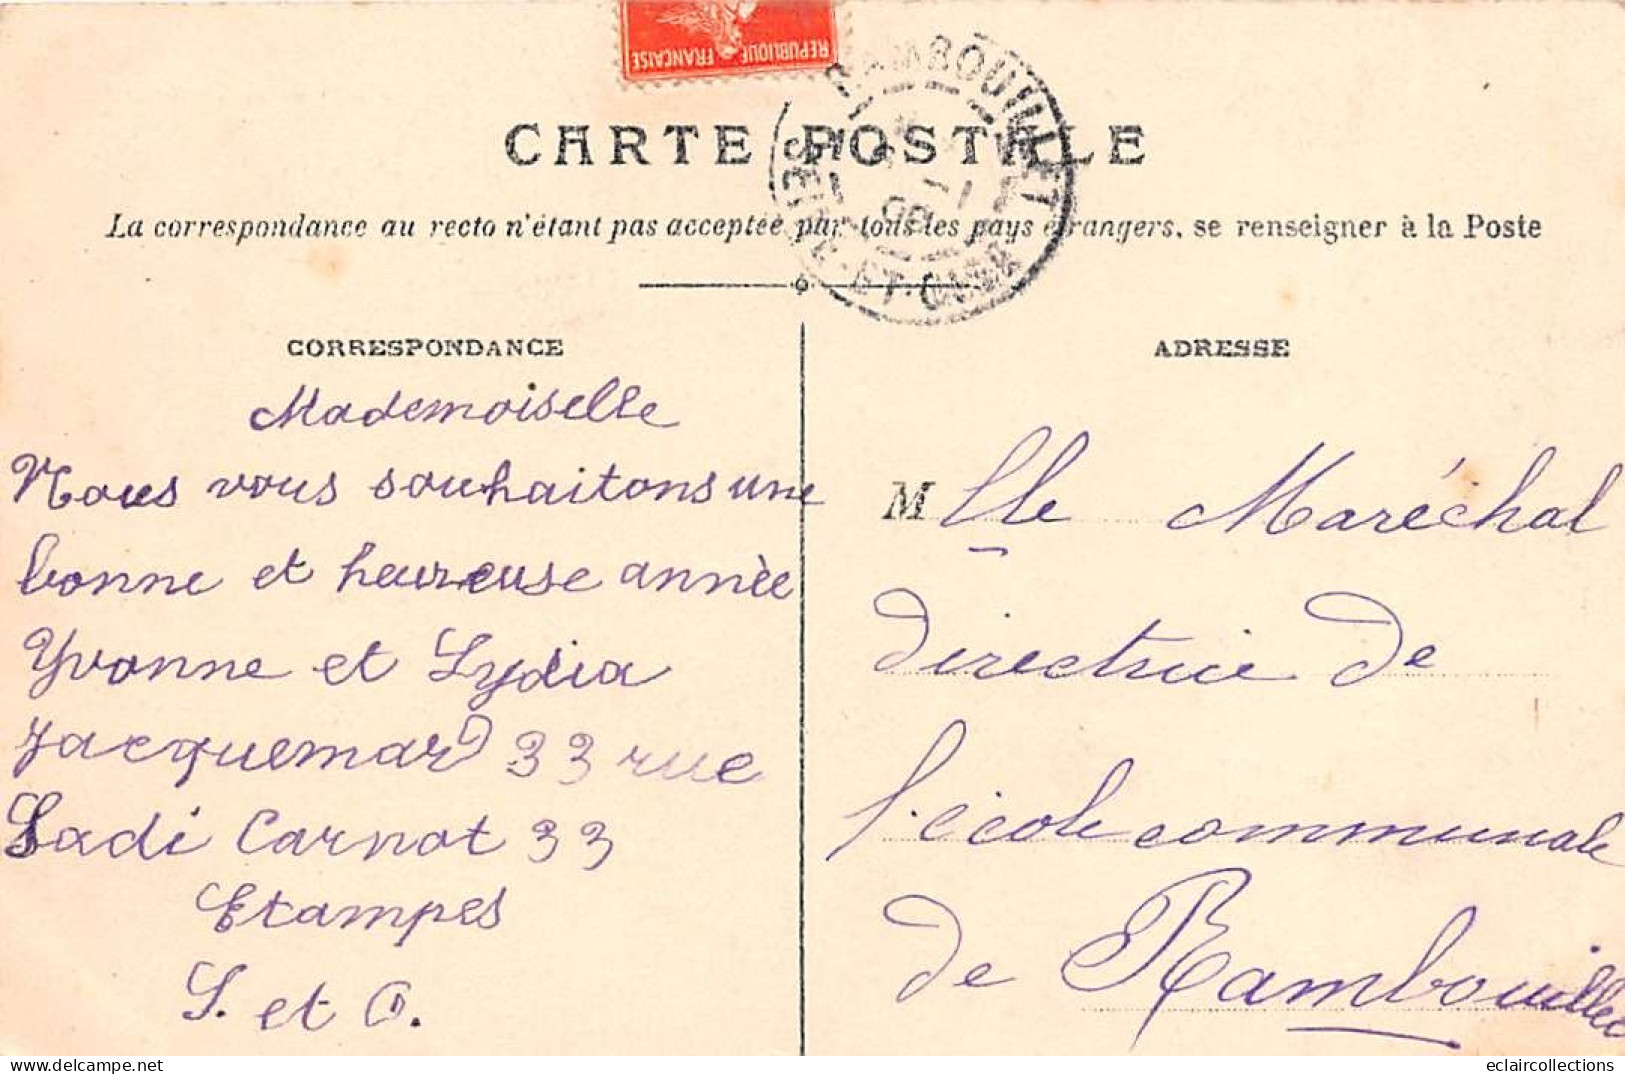 REPUBLIQUE FRANÇAISE
RAMBOUILLET
SEINE-ET-OISE
CARTE POSTALE
La correspondance au recto n'étant pas acceptée par tous les pays étrangers, se renseigner à la Poste
CORRESPONDANCE
Mademoiselle
Nous vous souhaitons une
bonne et heureuse année
Yvonne et Lydia
Jacquemard 33 rue
Sadi Carnot 33
Etampes
S. et O.
ADRESSE
Mlle Maréchal
directrice de
l'école communale
de Rambouillet
eclaircollections